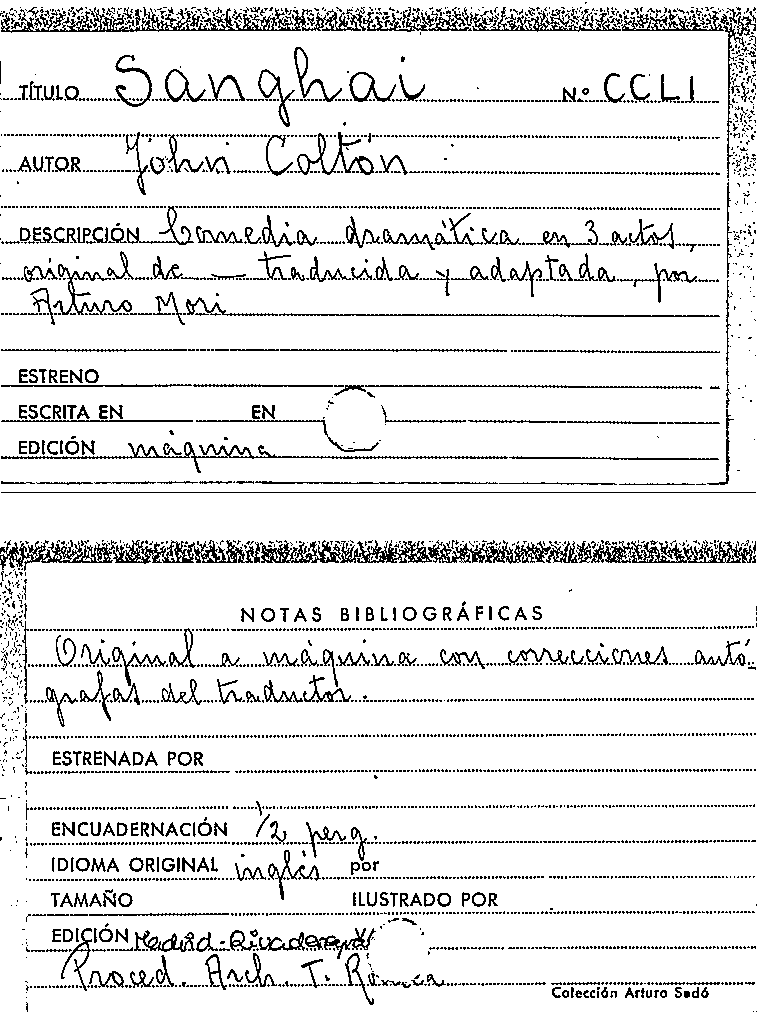 TÍTULO Sanghai N.º CCLI
AUTOR John Coltón
DESCRIPCIÓN Comedia dramática en 3 actos,
original de — traducida y adaptada, por
Arturo Mori
ESTRENO
ESCRITA EN EN
EDICIÓN máquina
NOTAS BIBLIOGRÁFICAS
Original a máquina con correcciones autó-
grafas del traductor.
ESTRENADA POR
ENCUADERNACIÓN 1/2 perg.
IDIOMA ORIGINAL inglés por
TAMAÑO ILUSTRADO POR
EDICIÓN Madrid-
Proced. Arch. T. Romea
Colección Arturo Sedó